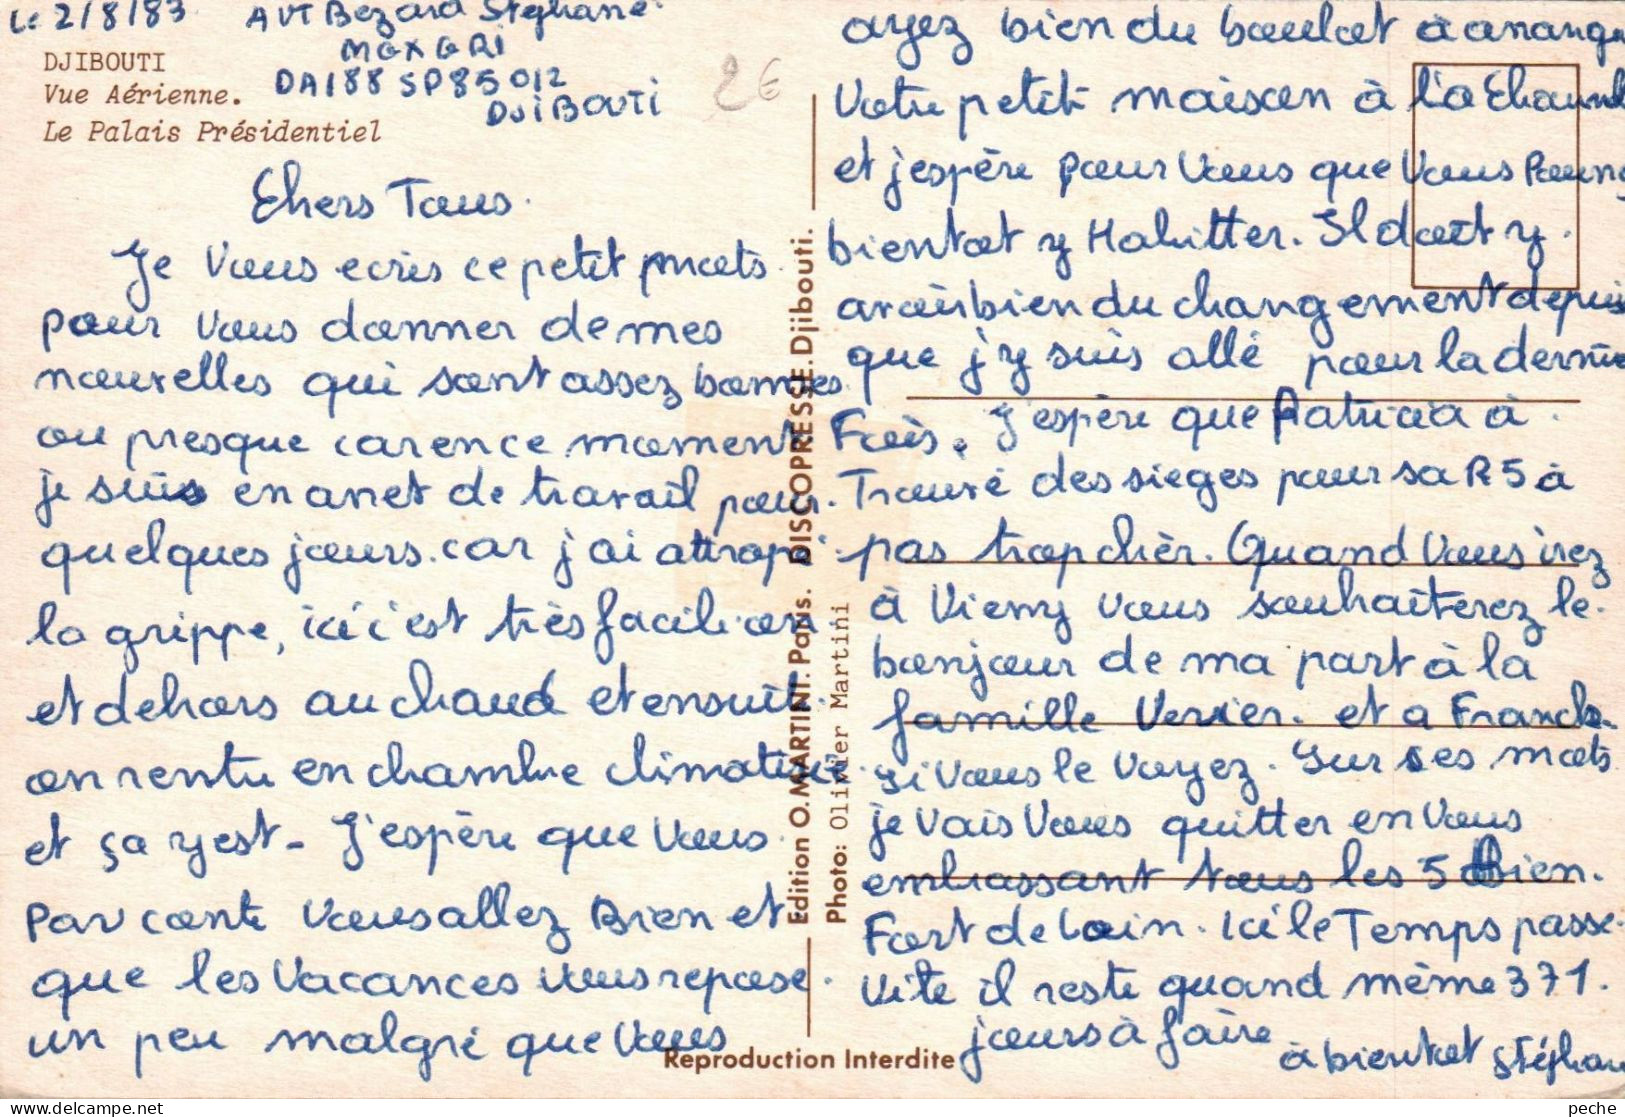 Le 2/8/83
AVT Bezard Stéphane
DJIBOUTI
Vue Aérienne.
DA188 SP85012
DJIBOUTI
Le Palais Présidentiel
2€
Chers Tous.
Je Vous ecris ce petit mots
pour Vous donner de mes
nouvelles qui sont assez bonnes
ou presque car en ce moment
je suis en arret de travail pour
quelques jours. car j'ai attrapé
la grippe, ici c'est très facile on
et dehors au chaud et ensuite
on rentre en chambre climatisée
et ça y est - J'espère que Vous
Par conte Vous allez Bien et
que les Vacances Vous repose
un peu malgré que Vous
ayez bien du boulot à arranger
Votre petit maison à la
et j'espère pour Vous que Vous
bientot y Habitter. Il doit y
avoir bien du changement depuis
que j'y suis allé pour la dernière
Fois. J'espère que Patricia à
Trouvé des sieges pour sa R5 à
pas trop chèr. Quand Vous irez
à Vierny vous souhaiterez le
bonjour de ma part à la
famille Verrier. et a Franck
si Vous le Voyez. Sur ses mots
je Vais Vous quitter en Vous
embrassant tous les 5 Bien
Fort de Loin. Ici le Temps passe
Vite il reste quand même 371
jours à faire
à bientot Stéphane
Edition O.MARTINI. Paris. DISCOPRESSE. Djibouti.
Photo: Olivier Martini
Reproduction Interdite
peche delcampe.net